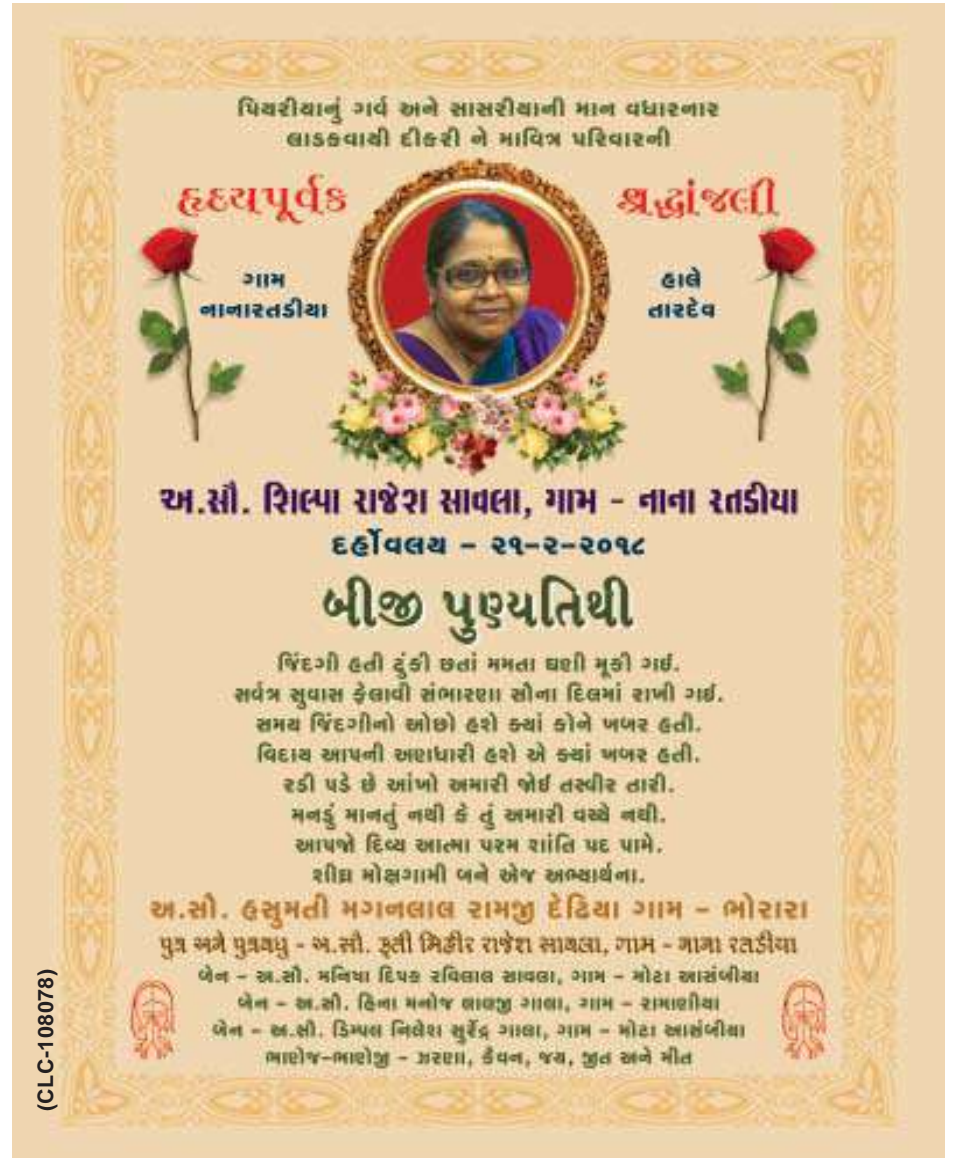 પિયરીયાનું ગર્વ અને સાસરીયાની માન વધારનાર
લાડકવાયી દીકરી ને માવિત્ર પરિવારની
હૃદયપૂર્વક શ્રદ્ધાંજલી
ગામ
નાનારતડીયા
હાલે
તારદેવ
અ.સૌ. શિલ્પા રાજેશ સાવલા, ગામ - નાના રતડીયા
૨૧-૨-૨૦૧૮
બીજી પુણ્યતિથી
જિંદગી હતી ટુંકી છતાં મમતા ઘણી મૂકી ગઈ.
સર્વત્ર સુવાસ ફેલાવી સંભારણા સૌના દિલમાં રાખી ગઈ.
સમય જિંદગીનો ઓછો હશે ક્યાં કોને ખબર હતી.
વિદાય આપની અણધારી હશે એ ક્યાં ખબર હતી.
રડી પડે છે આંખો અમારી જોઈ તસ્વીર તારી.
મનડું માનતું નથી કે તું અમારી વચ્ચે નથી.
આપજો દિવ્ય આત્મા પરમ શાંતિ પદ પામે.
શીઘ્ર મોક્ષગામી બને એજ અભ્યાર્થના.
અ.સૌ. હસુમતી મગનલાલ રામજી દેઢિયા ગામ - ભોરારા
પુત્ર અને પુત્રવધુ - અ.સૌ. કૃતી મિહીર રાજેશ સાવલા, ગામ - નાના રતડીયા
બેન - અ.સૌ. મનિષા દિપક રવિલાલ સાવલા, ગામ - મોટા આસંબીયા
બેન - અ.સૌ. હિના મનોજ લાલજી ગાલા, ગામ - રામાણીયા
બેન - અ.સૌ. ડિમ્પલ નિલેશ સુરેંદ્ર ગાલા, ગામ - મોટા આસંબીયા
ભાણેજ-ભાણેજી - ઝરણા, કેવન, જય, જીત અને મીત
(CLC-108078)